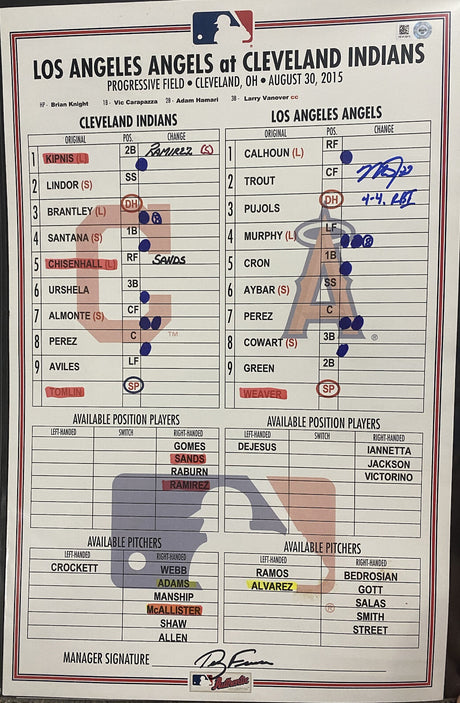 LOS ANGELES ANGELS at CLEVELAND INDIANS
PROGRESSIVE FIELD • CLEVELAND, OH • AUGUST 30, 2015
HP - Brian Knight 1B - Vic Carapazza 2B - Adam Hamari 3B - Larry Vanover cc
CLEVELAND INDIANS
ORIGINAL POS. CHANGE
1 KIPNIS (L) 2B RAMIREZ (S)
2 LINDOR (S) SS
3 BRANTLEY (L) DH
4 SANTANA (S) 1B
5 CHISENHALL (L) RF SANDS
6 URSHELA 3B
7 ALMONTE (S) CF
8 PEREZ C
9 AVILES LF
TOMLIN SP
LOS ANGELES ANGELS
ORIGINAL POS. CHANGE
1 CALHOUN (L) RF
2 TROUT CF
3 PUJOLS DH 4-4, RBI
4 MURPHY (L) LF
5 CRON 1B
6 AYBAR (S) SS
7 PEREZ C
8 COWART (S) 3B
9 GREEN 2B
WEAVER SP
AVAILABLE POSITION PLAYERS
LEFT-HANDED SWITCH RIGHT-HANDED
GOMES
SANDS
RABURN
RAMIREZ
AVAILABLE POSITION PLAYERS
LEFT-HANDED SWITCH RIGHT-HANDED
DEJESUS IANNETTA
JACKSON
VICTORINO
AVAILABLE PITCHERS
LEFT-HANDED RIGHT-HANDED
CROCKETT WEBB
ADAMS
MANSHIP
McALLISTER
SHAW
ALLEN
AVAILABLE PITCHERS
LEFT-HANDED RIGHT-HANDED
RAMOS BEDROSIAN
ALVAREZ GOTT
SALAS
SMITH
STREET
MANAGER SIGNATURE
Authentic